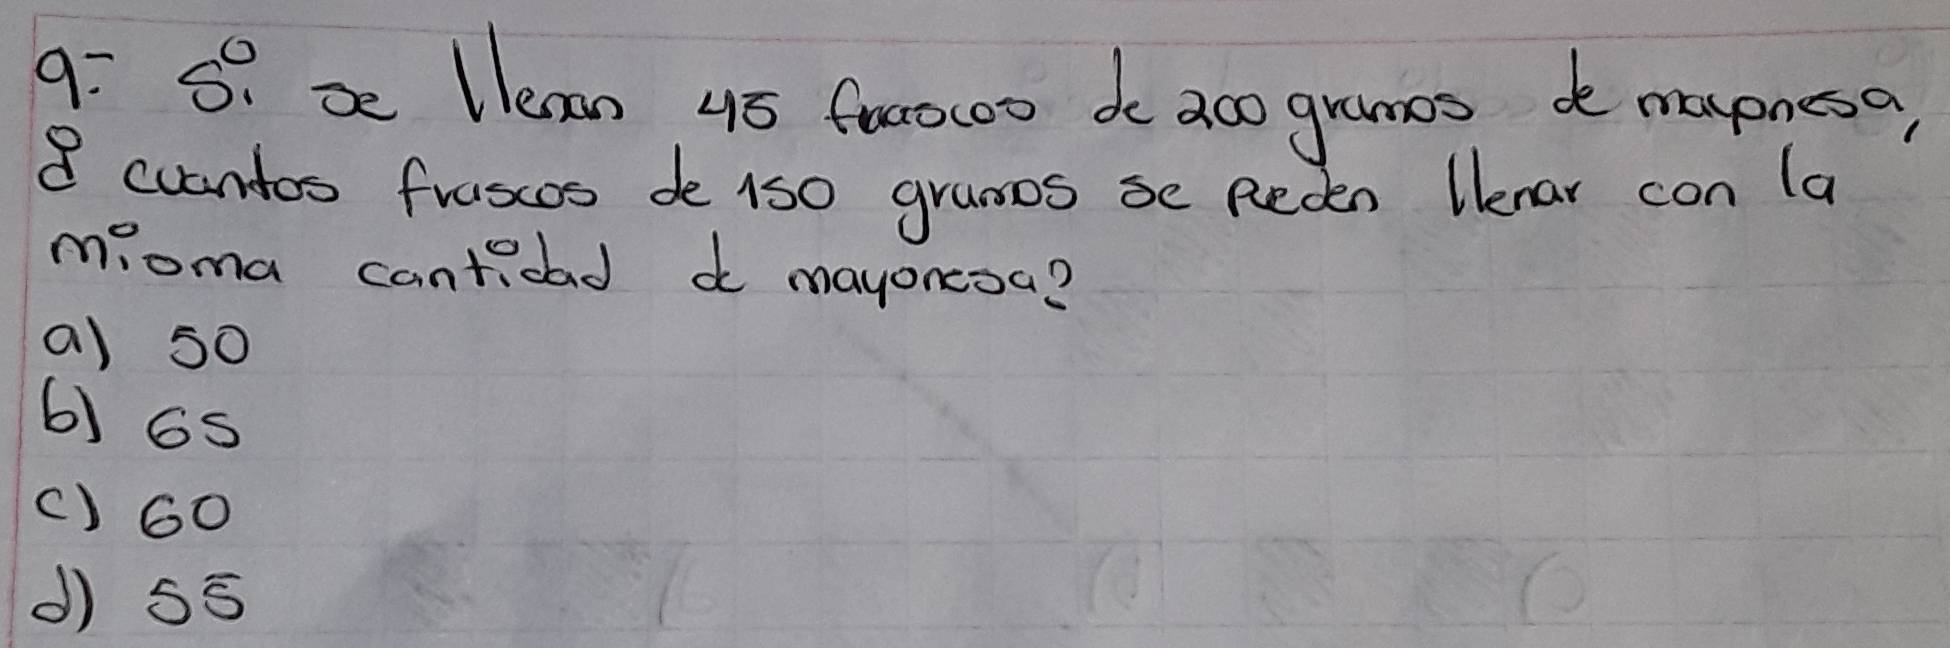 9.- Si se llenan 45 frascos de 200 gramos de mayonesa,
¿ cuantos frascos de 150 gramos se pueden llenar con la
misma cantidad de mayonesa?
a) 50
b) 65
c) 60
d) 55